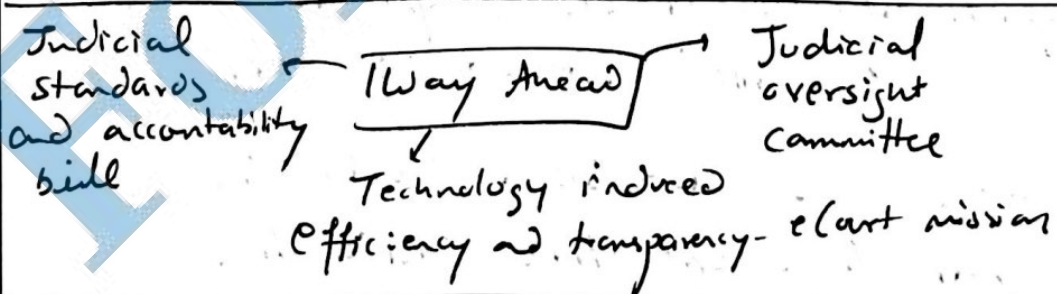 Judicial
standards
and accountability
bill
Way Ahead
Judicial
oversight
Committee
Technology induced
efficiency and transparency - eCourt mission